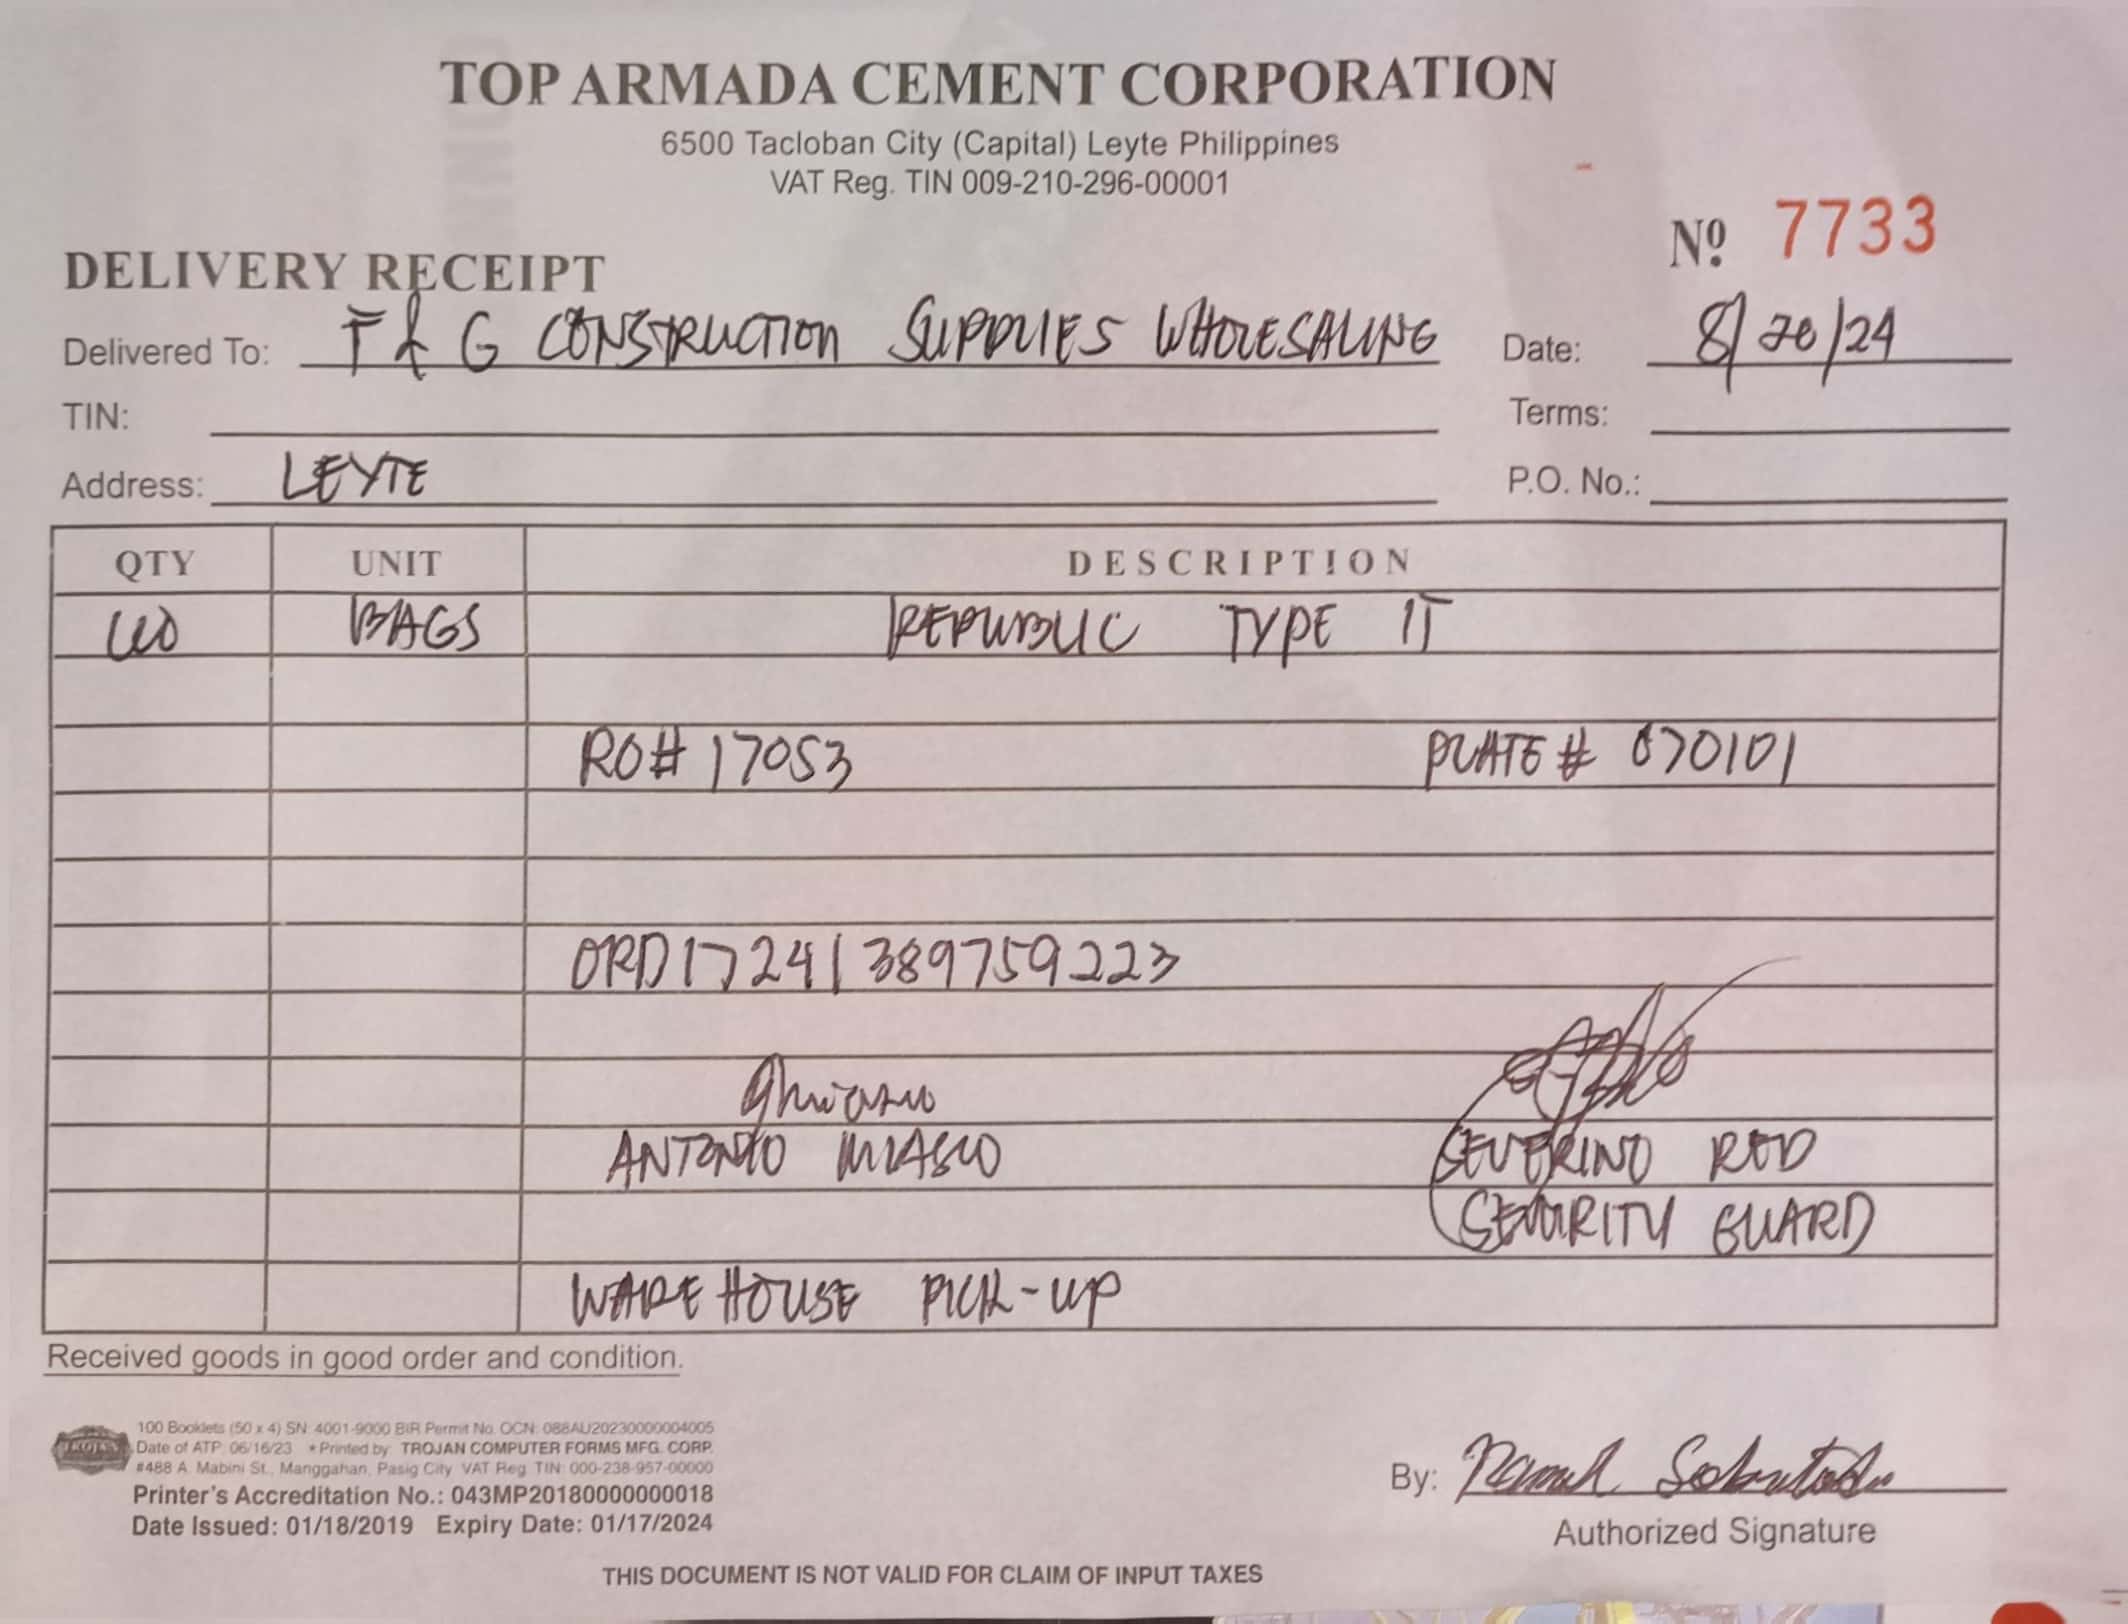 TOP ARMADA CEMENT CORPORATION
6500 Tacloban City (Capital) Leyte Philippines
VAT Reg. TIN 009-210-296-00001
Nº 7733
DELIVERY RECEIPT
Delivered To: F & G CONSTRUCTION SUPPLIES WHOLESALING Date: 8/20/24
TIN: Terms:
Address: LEYTE P.O. No.:
QTY UNIT DESCRIPTION
BAGS REPUBLIC TYPE 1T
RO# 17053 PLATE # 070101
ORD17241389759223
ANTONIO SEVERINO RED
SECURITY GUARD
WAREHOUSE PICK-UP
Received goods in good order and condition.
100 Booklets (50 x 4) SN: 4001-9000 BIR Permit No. OCN: 088AU20230000004005
TROJAN Date of ATP: 06/16/23 * Printed by: TROJAN COMPUTER FORMS MFG. CORP.
#488 A. Mabini St., Manggahan, Pasig City VAT Reg. TIN: 000-238-957-00000
Printer's Accreditation No.: 043MP20180000000018
Date Issued: 01/18/2019 Expiry Date: 01/17/2024
By:
Authorized Signature
THIS DOCUMENT IS NOT VALID FOR CLAIM OF INPUT TAXES